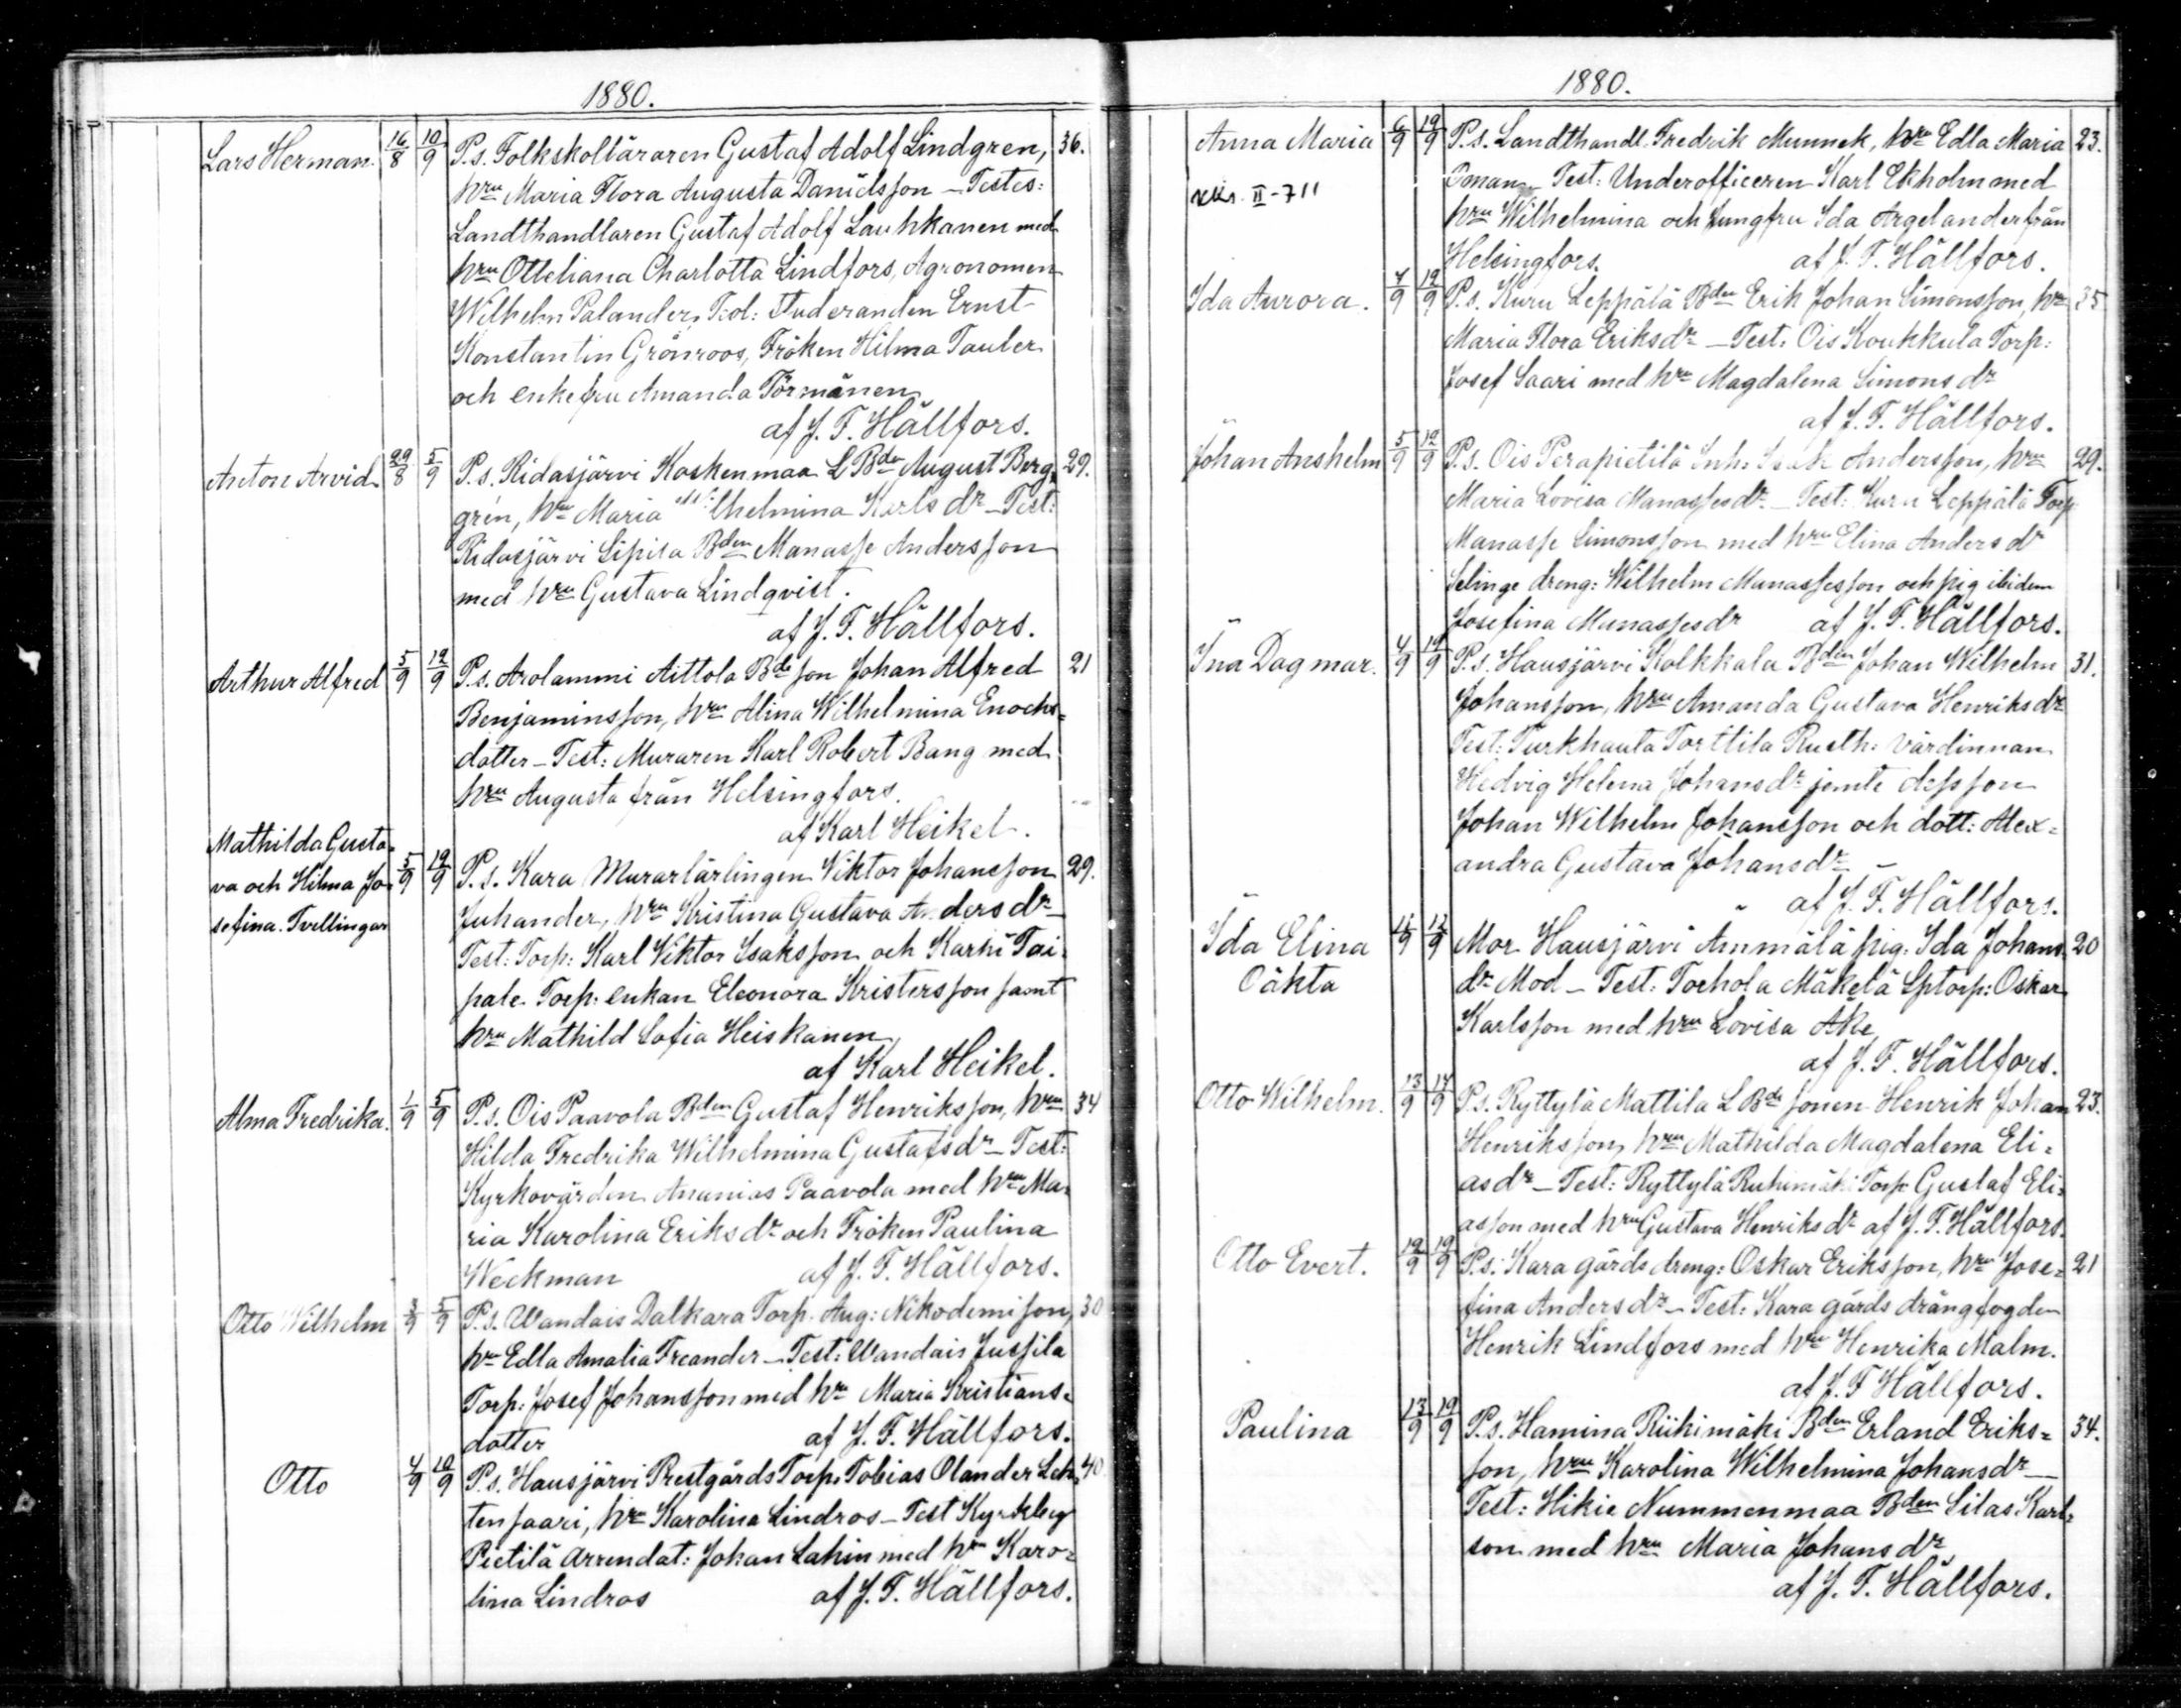 1880.
Lars Herman. 16/8 10/9 P.s. Folkskolläraren Gustaf Adolf Lindgren, 36.
hru Maria Flora Augusta Danielsson – Testes:
Landthandlaren Gustaf Adolf Lauhkanen med
hru Otteliana Charlotta Lindfors, Agronomen
Wilhelm Palander, Kol: Studeranden Ernst
Konstantin Grönroos, Fröken Hilma Tauler
och enkefru Amanda Törmänen
af J. F. Hällfors.
Anton Arvid 29/8 5/9 P.s. Ridasjärvi Koskenmaa L Bde August Berg- 29.
grén, hru Maria Wilhelmina Karls dr – Test:
Ridasjärvi Sipila Bden Manasse Andersson
med hru Gustava Lindqvist.
af J. F. Hällfors.
Arthur Alfred 5/9 12/9 P.s. Arolammi Aittola Bde son Johan Alfred 21
Benjaminsson, hru Alina Wilhelmina Enochs=
dotter – Test: Muraren Karl Robert Bang med
hru Augusta från Helsingfors.
af Karl Heikel.
Mathilda Gusta-
va och Hilma Jo- 5/9 12/9 P.s. Kara Murarlärlingen Viktor Johansson 29.
sefina. Tvillingar Juhander, hru Kristina Gustava Anders dr –
Test: Torp: Karl Viktor Isaksson och Karhi Tai-
pale Torp: enkan Eleonora Kristersson samt
hru Mathild Sofia Heiskanen
af Karl Heikel.
Alma Fredrika. 1/9 5/9 P.s. Ois Paavola Bden Gustaf Henriksson, hru 34
Hilda Fredrika Wilhelmina Gustafsdr – Test:
Kyrkovärden Ananias Paavola med hru Ma-
ria Karolina Eriks dr och Fröken Paulina
Weckman af J. F. Hällfors.
Otto Wilhelm 3/9 5/9 P.s. Wandais Dalkara Torp. Aug: Nikodemisson, 30
hru Edla Amalia Freander – Test: Wandais Jussila
Torp: Josef Johansson med hru Maria Kristians-
dotter af J. F. Hällfors.
Otto 4/9 10/9 P.s. Hausjärvi Prestgårds Torp. Tobias Olander Leh- 40
tensaari, hru Karolina Lindros – Test Kyrkby
Pietilä Arrendat: Johan Lahin med hru Karo=
lina Lindros af J. F. Hällfors.
1880.
Anna Maria 6/9 12/9 P.s. Landthandl. Fredrik Munnek, hru Edla Maria 23.
II-711 Öman Test: Underofficeren Karl Ekholm med
hru Wilhelmina och Jungfru Ida Argelander från
Helsingfors. af J. F. Hällfors.
Ida Aurora. 7/9 12/9 P.s. Kuru Leppälä Bden Erik Johan Simonsson, hru 35
Maria Flora Eriksdr – Test: Ois Koukkula Torp:
Josef Saari med hru Magdalena Simons dr
af J. F. Hällfors.
Johan Anshelm 5/9 12/9 P.s. Ois Perapietilä Inh: Isak Andersson, hru 29.
Maria Lovisa Manassesdr – Test: Kuru Leppälä Torp
Manasse Simonsson med hru Elina Anders dr
Selinge dreng: Wilhelm Manassesson och pig ibidem
Josefina Manassesdr af J. F. Hällfors.
Ina Dagmar. 4/9 19/9 P.s. Hausjärvi Kolkkala Bden Johan Wilhelm 31.
Johansson, hru Amanda Gustava Henriksdr
Test: Turkhauta Torttila Rusth: värdinnan
Hedvig Helena Johansdr jemte dess son
Johan Wilhelm Johansson och dott: Alex=
andra Gustava Johansdr –
af J. F. Hällfors.
Ida Elina 11/9 12/9 Mor Hausjärvi Ammälä pig: Ida Johans- 20
Oäkta dr Mod – Test: Torhola Mäkelä Sptorp: Oskar
Karlsson med hru Lovisa Ake
af J. F. Hällfors.
Otto Wilhelm. 13/9 17/9 P.s. Ryttylä Mattila L Bde sonen Henrik Johan 23.
Henriksson, hru Mathilda Magdalena Eli=
asdr – Test: Ryttylä Ruhimäki Torp Gustaf Eli-
asson med hru Gustava Henriks dr af J. F. Hällfors.
Otto Evert. 12/9 19/9 P.s. Kara gårds dreng: Oskar Eriksson, hru Jose= 21
fina Anders dr – Test: Kara gårds drängfogden
Henrik Lindfors med hru Henrika Malm.
af J. F Hällfors.
Paulina 13/9 19/9 P.s. Hamina Riihimäki Bden Erland Eriks= 34.
son, hru Karolina Wilhelmina Johansdr –
Test: Hikie Nummenmaa Bden Silas Karl=
son med hru Maria Johans dr
af J. F. Hällfors.